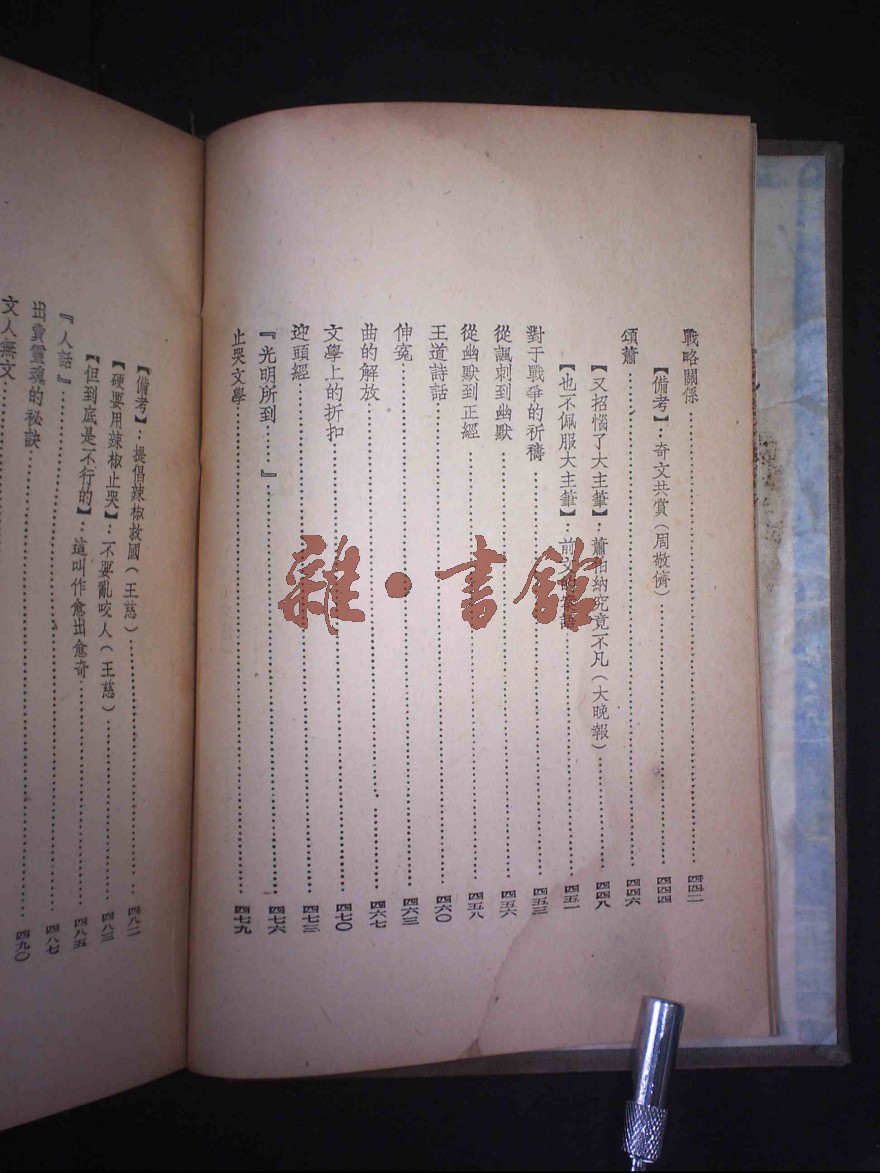 戰略關係…………四四二
【備考】：奇文共賞（周敬儕）…………四四四
頌蕭…………四四六
【又招惱了大主筆】：蕭伯納究竟不凡（大晚報）…………四四八
【也不佩服大主筆】：前文的…………四五一
對于戰爭的祈禱…………四五三
從諷刺到幽默…………四五六
從幽默到正經…………四五八
王道詩話…………四六〇
伸寃…………四六三
曲的解放…………四六七
文學上的折扣…………四七〇
迎頭經…………四七三
『光明所到……』…………四七六
止哭文學…………四七九
【備考】：提倡辣椒救國（王慈）…………四八二
【硬要用辣椒止哭】：不要亂咬人（王慈）…………四八三
【但到底是不行的】：這叫作愈出愈奇…………四八五
『人話』…………四八七
出賣靈魂的秘訣…………四九〇
文人無文…………
雜·書館